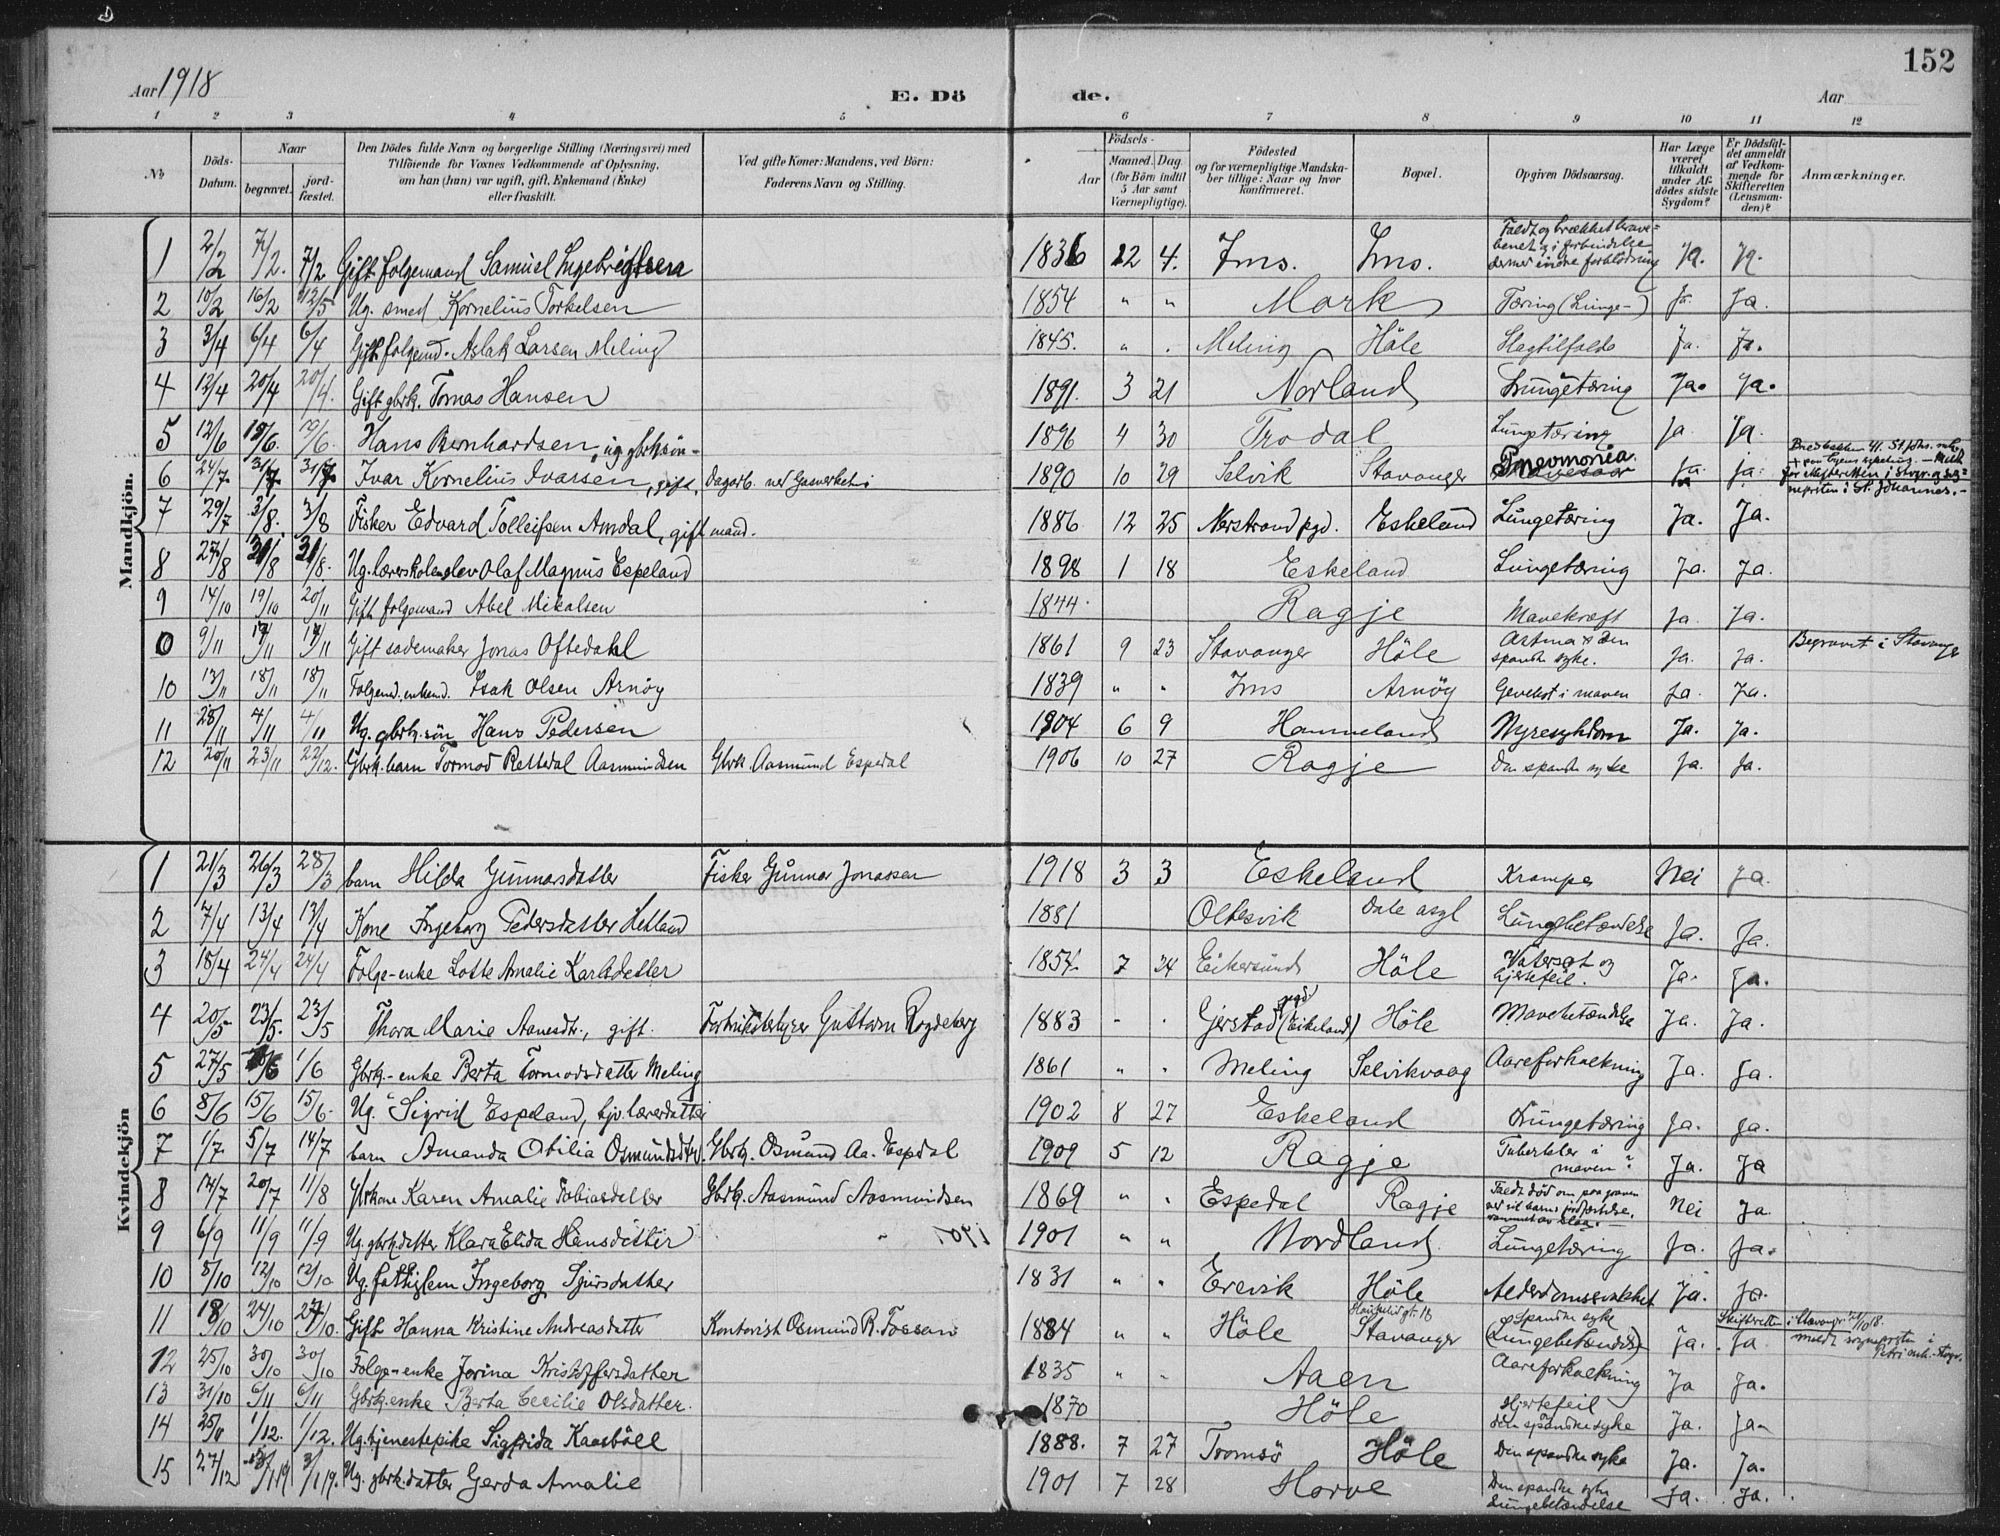 152
Aar 1918
E. Dö
de.
Aar
1 2 3 4 5 6 7 8 9 10 11 12
№
Döds-Datum.
Naar
begravet.
jord-fæstet.
Den Dödes fulde Navn og borgerlige Stilling (Næringsvei) med
Tilföiende for Voxnes Vedkommende af Oplysning,
om han (hun) var ugift, gift, Enkemand (Enke)
eller fraskilt.
Ved gifte Koner: Mandens, ved Börn:
Faderens Navn og Stilling.
Födsels-
Aar
Maaned. Dag
(for Börn indtil
5 Aar samt
Værnepligtige).
Födested
og for værnepligtige Mandska-
ber tillige: Naar og hvor
konfirmeret.
Bopæl.
Opgiven Dödsaarsag.
Har Læge
været
tilkaldt
under Af-
dödes sidste
Sygdom?
Er Dödsfal-
det anmeldt
af Vedkom-
mende for
Skifteretten
(Lensman-
den)?
Anmærkninger.
Mandkjön.
1 2/2 7/2. 7/2 Gift folgemand Samuel Ingebrigtsen 1836 12 4. Ims. Ims. Faldt og brækket brave-benet og i forbindelse dermed indre forblødning Ja. Ja.
2 10/2 16/2 12/5 Ug. smed Kornelius Torkelsen 1854 " " Mork Tæring (Lunge-) Ja. Ja.
3 3/4 6/4 6/4 Gift folgemd. Aslak Larsen Meling 1845. " . Meling Höle Slagtilfælde Ja. Ja.
4 12/4 20/4 20/4. Gift gbrk. Tomas Hansen 1891. 3 21 Norland Lungetæring Ja. Ja.
5 12/6 19/6. 19/6. Hans Bernhardsen, ug. gbrk.sön- 1896 4 30 Trodal Lungetæring Ja. Ja.
6 24/7 31/7 31/7 Ivar Kornelius Ivarsen, gift. Dagarb. ved Gasverket 1890 10 29 Selvik Stavanger Pneumonia. Ja. Ja.
7 29/7 3/8. 3/8 Fisker Edvard Tolleifsen Amdal, gift mand. 1886 12 25 Nerstrand pgd. Eskeland Lungetæring Ja. Ja.
8 27/8 31/8 31/8. Ug. lærerskoleelev Olaf Magnus Espeland 1898 1 18 Eskeland Lungetæring Ja. Ja.
9 14/10 19/10 20/11 Gift folgemand Abel Mikalsen 1844 Ragje Mavekræft Ja. Ja.
0 9/11 19/11 19/11 Gift sadelmaker Jonas Oftedahl 1861 9 23 Stavanger Höle Astma & den spanske syke. Ja. Ja. Begravet i Stavanger
10 13/11 18/11 18/11 Folgemd. enkemd. Isak Olsen Arnöy 1839 " " Ims Arnöy Gevekst i maven Ja. Ja.
11 28/11 4/11 4/11 Ug. gbrk.sön Hans Pedersen 1904 6 9 Hammeland Nyresykdom Ja. Ja.
12 20/11 23/11 22/12. Gbrk.barn Tormod Rettedal Aasmundsen Gbrk. Aasmund Espedal 1906 10 27 Ragje Den spanske syke Ja. Ja.
Kvindekjön
1 21/3 26/3 28/3 barn Hilda Gunnarsdatter Fisker Gunnar Jonassen 1918 3 3 Eskeland Krampe Nei Ja.
2 7/4 13/4 13/4 Kone Ingeborg Pedersdatter Hetland 1881 Oltesvik Dale asyl Lungebetændelse Ja. Ja.
3 18/4 24/4 24/4 Folge-enke Lotte Amalie Karlsdatter 1854. 7 24 Eikersund Höle Vatersot og hjertefeil. Ja. Ja.
4 20/5 23/5. 23/5 Thora Marie Aanesdtr., gift. Fabrikbestyrer Gustav Rogdeberg 1883 - . Gjerstad pgd. (Eikeland) Höle Mavebetændelse Ja. Ja.
5 27/5 1/6 Gbrk.-enke Berta Tormodsdatter Meling 1861 " " Meling Selvikvaag Aareforkalkning Ja. Ja.
6 8/6 15/6 15/6. Ug. Sigrid Espeland, hjv. lærerdatter 1902 8 27 Eskeland Lungetæring Ja. Ja.
7 1/7. 5/7 14/7 barn Amanda Obilia Osmundsdtr. Gbrk. Osmund Aa. Espdal 1909 5 12 Ragje Tuberkler i maven? Ja. Ja
8 14/7 20/7 11/8 Gbrkone Karen Amalie Tobiasdatter Gbrk. Aasmund Aasmundsen 1869 " " Espedal Ragje Faldt död om paa graven ved sit barns jordfæstelse. Nei Ja.
9 6/9 11/9 11/9 Ug. gbrk.datter Klara Elida Hansdatter 1901 " " Nordland Lungetæring Ja. Ja.
10 8/10 12/10 12/10 Ug. fattiglem Ingeborg Sjursdatter 1831 " " Erevik Höle Alderdomssvakhet Ja. Ja.
11 18/10 24/10 27/10. Gift Hanna Kristine Andreasdatter Kontorist Osmund R. Fossan 1884 " " Höle Stavanger Spanske syke (Lungebetændelse) Ja. Ja. Skifteretten i Stavanger
12 25/10 30/10 30/10 Folge-enke Jorina Kristoffersdatter 1835 " " Aaen Aareforkalkning Ja Ja.
13 31/10 6/11 6/11 Gbrk.enke Berta Cecilie Olsdatter. 1870 Höle Hjertefeil den spanske syke Ja. Ja.
14 25/11 1/12. 1/12. Ug. tjenestepike Sigfrida Kaasböll 1888. 7 27 Tromsö Höle Den spanske syke Ja. Ja.
15 27/12 3/1 19 3/1 19. Ug. gbrk.datter Gerda Amalie 1901 7 28 Horve Den spanske syke Lungebetændelse Ja. Ja.